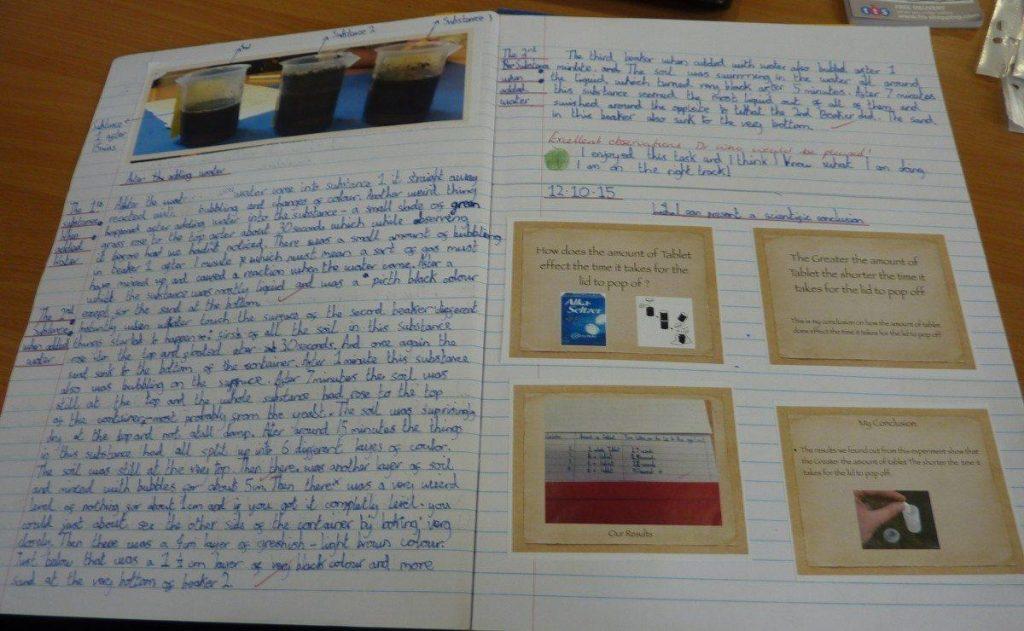 Substance 2
Substance 3
Substance
1 after
15mins
After the adding water
The 1st
substance
when
added
water
water came into substance 1 it straight away
reacted with bubbling and changes of colour. Another weird thing
happened after adding water into the substance - a small shade of green
grass rose to the top after about 30 seconds which while observing
it before had we hadn't noticed. There was a small amount of bubbling
in beaker 1 after 1 minute which must mean a sort of gas must
have mixed up and caused a reaction when the water came. After a
which the substance was mostly liquid and was a pitch black colour
except for the sand at the bottom.
The 2nd
substance
when added
water
Instantly when water touch the surface of the second beaker different
things started to happen. First of all the soil in this substance
rose to the top and floated after 30 seconds. And once again the
sand sank to the bottom of the container. After 1 minute this substance
also was bubbling on the surface. After 7 minutes the soil was
still at the top and the whole substance had rose to the top
of the container - most probably from the water. The soil was suprisingly
dry at the top and not atall damp. After around 15 minutes the things
in this substance had all split up into 6 different layers of coulor.
The soil was still at the very top. Then there was another layer of soil
and mixed with bubbles for about 5cm. Then there was a very weird
level of nothing for about 1cm and if you got it completly level you
could just about see the other side of the container by looking very
closely. Then there was a 4cm layer of greenish-light brown colour.
Just below that was a 1 ½ cm layer of very black colour and more
sand at the very bottom of beaker 2.
The 3rd
Substance
when
added
water
The third beaker when added with water also bubbled after 1
minute and The soil was swimming in the water all around
the liquid which turned black after 5 minutes. After 7 minutes
this substance seemed the most liquid out of all of them and
swished around the opposite to what the 2nd Beaker did. The sand
in this beaker also sank to the very bottom.
Excellent observations. Dr would be proud!
I enjoyed this task and I think I know what I am doing
I am on the right track!
12.10.15
I can present a scientific conclusion
How does the amount of Tablet
effect the time it takes for the
lid to pop of ?
Alka-
Seltzer
The Greater the amount of
Tablet the shorter the time it
takes for the lid to pop off
This is my conclusion on how the amount of tablet
does effect the time it takes for the lid to pop off
Our Results
My Conclusion
• The results we found out from this experiment show that
the Greater the amount of tablet. The shorter the time it
takes for the lid to pop off.
tts
FREE DELIVERY